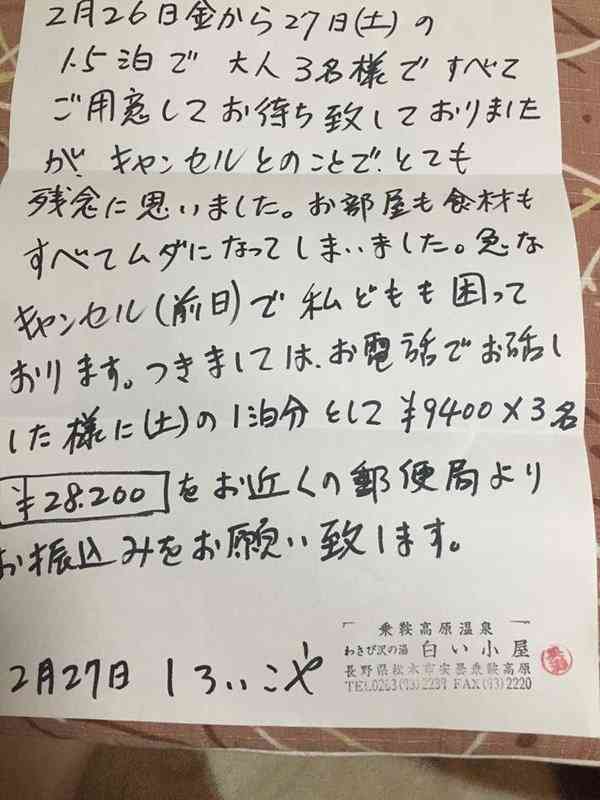 2月26日金から27日(土)の
1.5泊で 大人3名様で すべて
ご用意してお待ち致しておりました
が、キャンセルとのことで、とても
残念に思いました。お部屋も食材も
すべてムダになってしまいました。急な
キャンセル(前日)で私どもも困って
おります。つきましては、お電話でお話し
した様に(土)の1泊分として¥9400×3名
¥28.200 をお近くの郵便局より
お振込みをお願い致します。
2月27日 しろいこや
乗鞍高原温泉
わさび沢の湯 白い小屋
長野県松本市安曇乗鞍高原
TEL0263(93)2239 FAX(93)2220